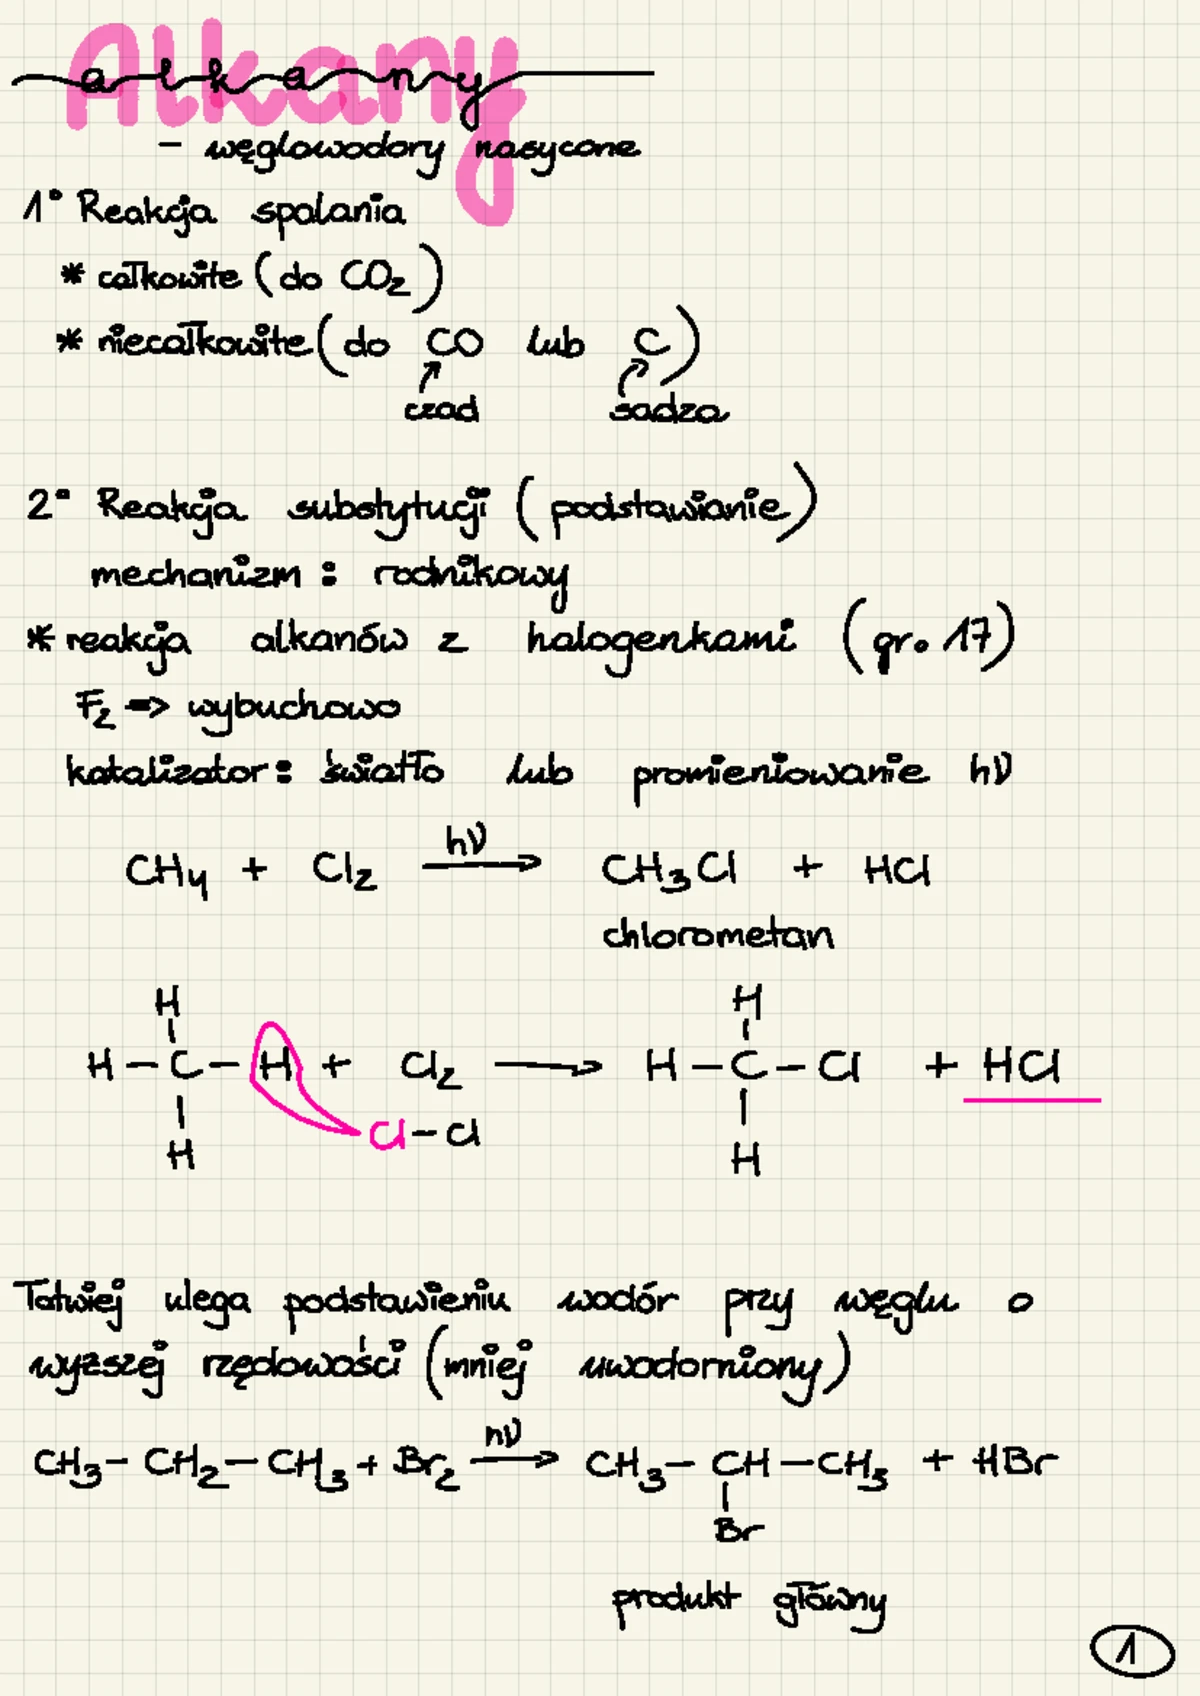 Alkany
alkany
- węglowodory nasycone
1° Reakcja spalania
* całkowite (do CO₂)
* niecałkowite (do CO lub C)
czad sadza
2° Reakcja substytucji (podstawianie)
mechanizm : rodnikowy
* reakcja alkanów z halogenkami (gr. 17)
F₂ => wybuchowo
katalizator: światło lub promieniowanie hν
hν
CH₄ + Cl₂ → CH₃Cl + HCl
chlorometan
H H
H-C-H + Cl₂ → H-C-Cl + HCl
Cl-Cl
H H
Łatwiej ulega podstawieniu wodór przy węglu o
wyższej rzędowości (mniej uwodorniony)
hν
CH₃-CH₂-CH₃ + Br₂ → CH₃-CH-CH₃ + HBr
Br
produkt główny
1